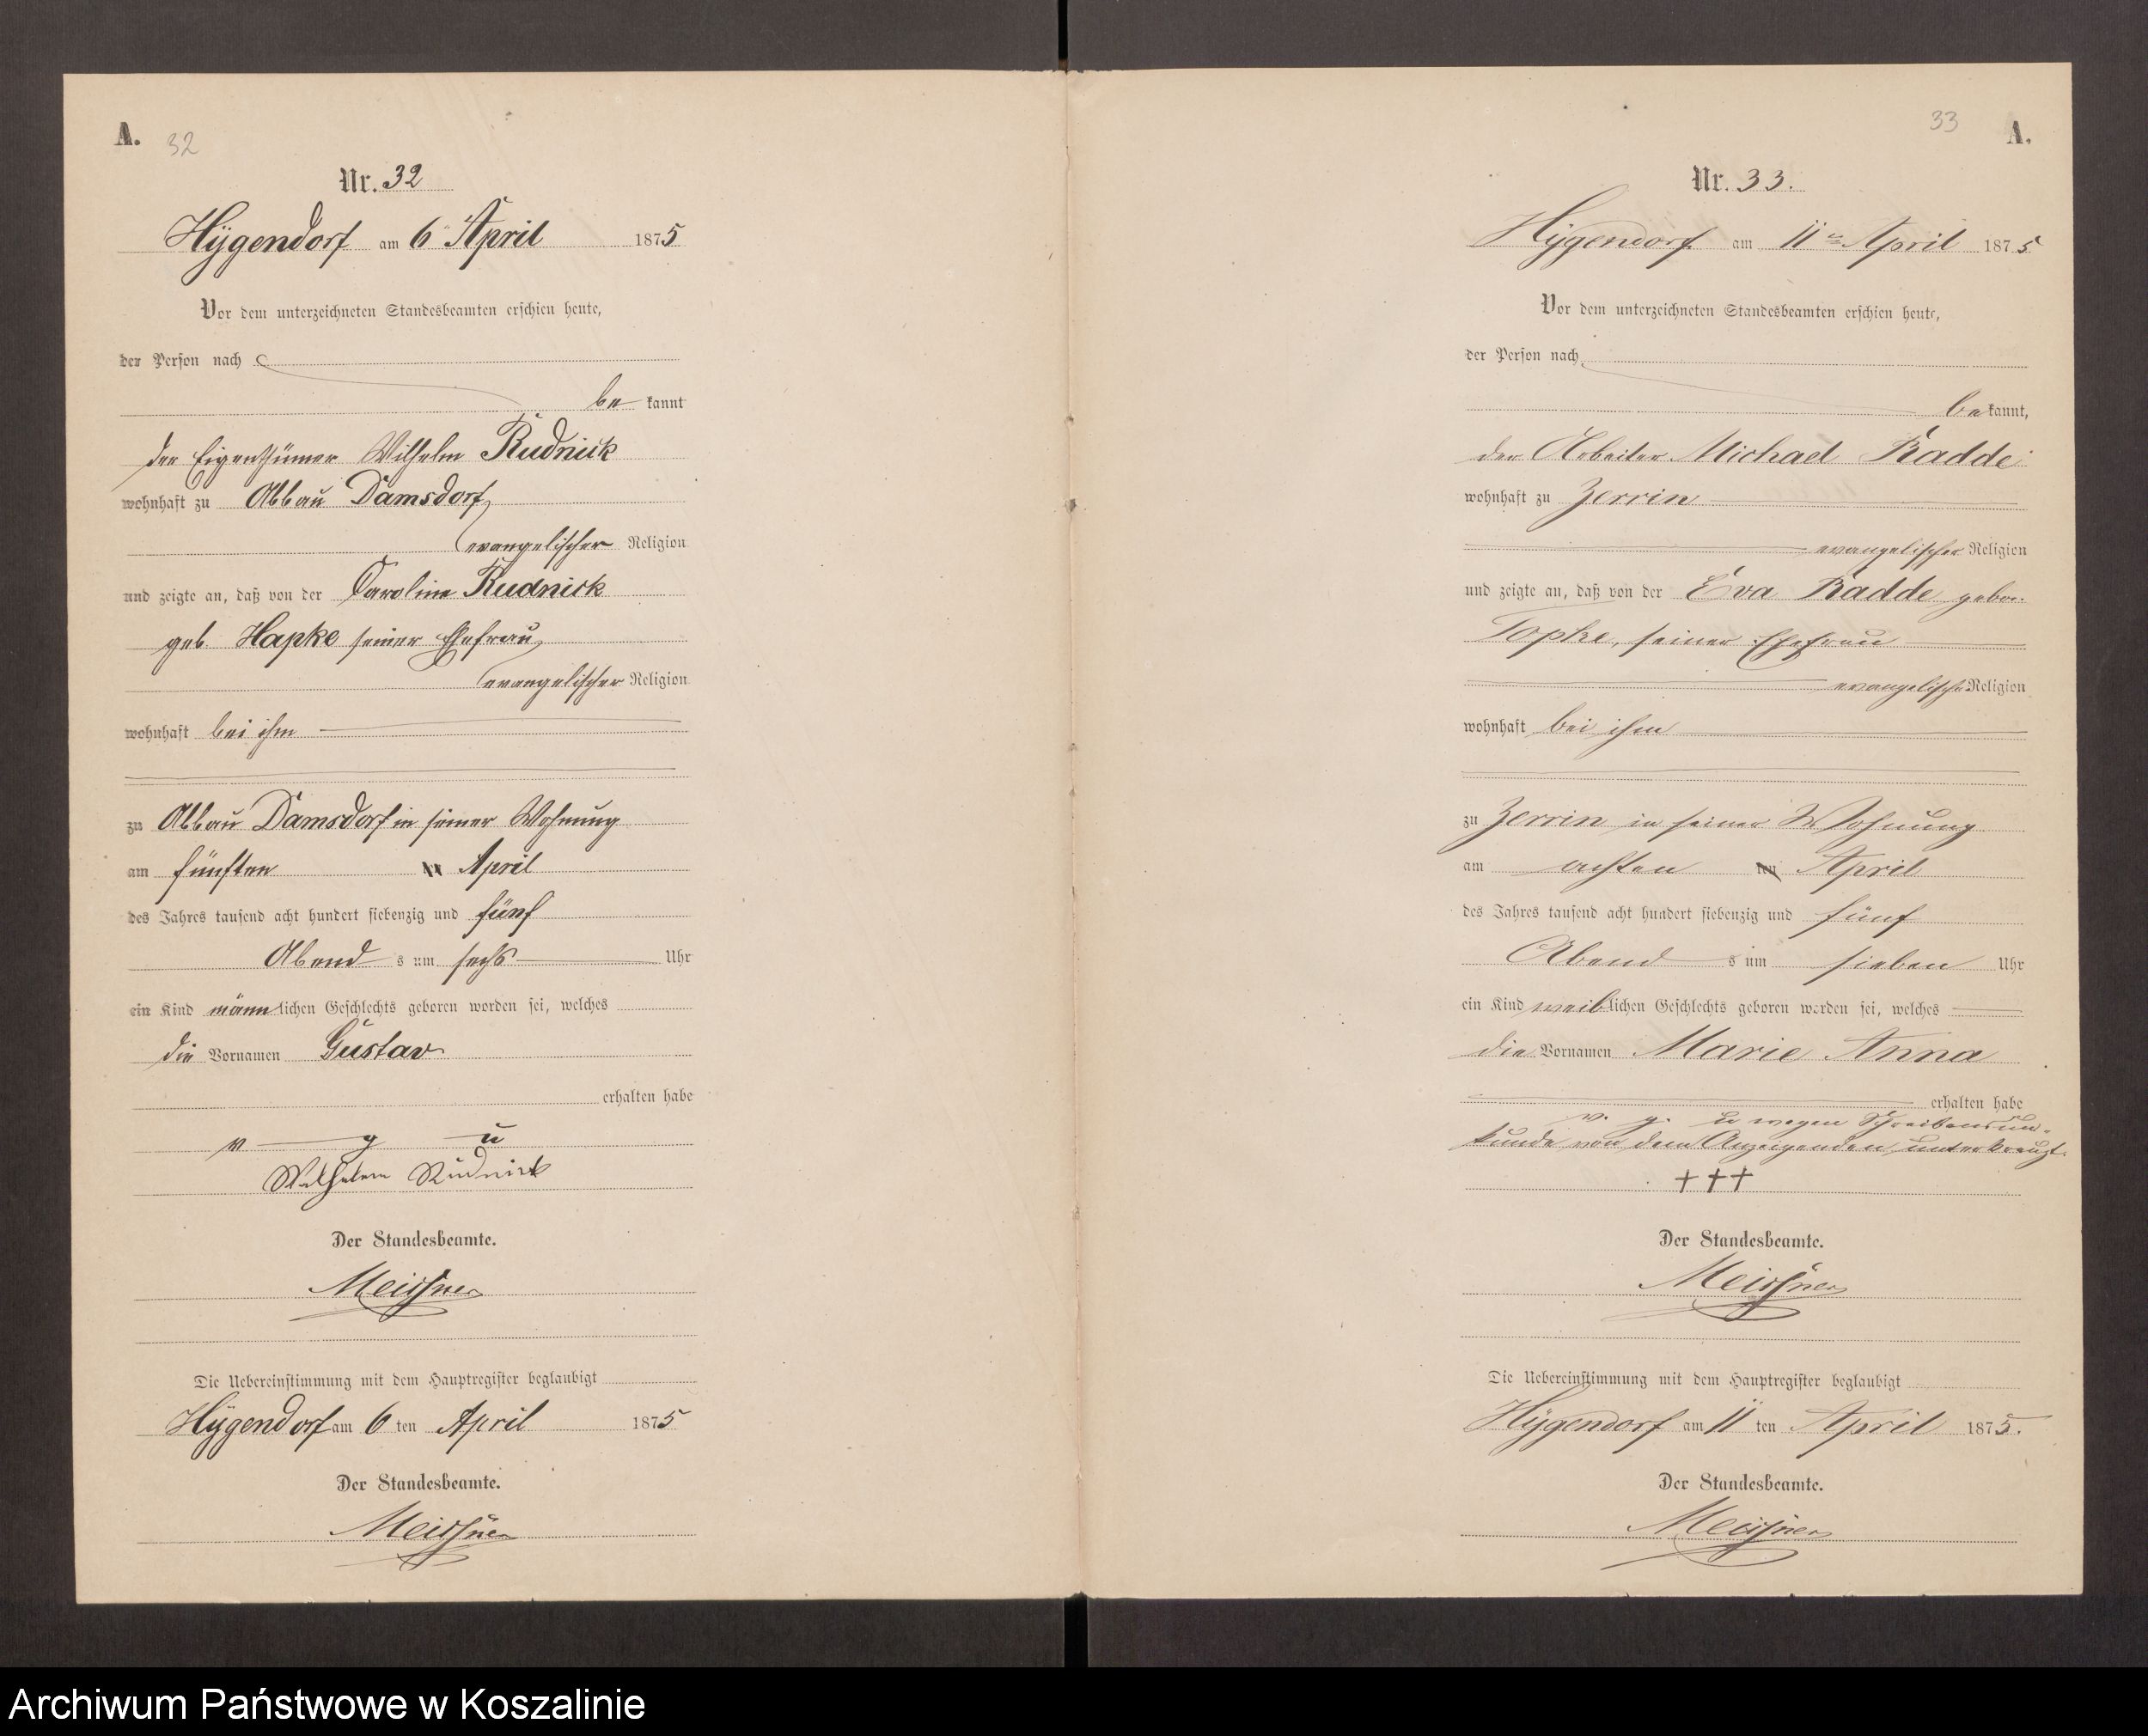 A. 32
Nr. 32
Hÿgendorf am 6 April 1875
Vor dem unterzeichneten Standesbeamten erschien heute,
der Person nach
be kannt
der Eigenthümer Wilhelm Rudnick
wohnhaft zu Abbau Damsdorf,
evangelischer Religion
und zeigte an, daß von der Caroline Rudnick
geb Hapke seiner Ehefrau,
evangelischer Religion
wohnhaft bei ihm
zu Abbau Damsdorf in seiner Wohnung
am fünften April
des Jahres tausend acht hundert siebenzig und fünf
Abend s um sechs Uhr
ein Kind männlichen Geschlechts geboren worden sei, welches
die Vornamen Gustav
erhalten habe
v g u
Wilhelm Rudnick
Der Standesbeamte.
Meissner
Die Uebereinstimmung mit dem Hauptregister beglaubigt
Hÿgendorf am 6 ten April 1875
Der Standesbeamte.
Meissner
33 A.
Nr. 33.
Hÿgendorf am 11 April 1875
Vor dem unterzeichneten Standesbeamten erschien heute,
der Person nach
bekannt,
der Arbeiter Michael Radde
wohnhaft zu Zerrin
evangelischer Religion
und zeigte an, daß von der Eva Radde gebor.
Topke, seiner Ehefrau
evangelischer Religion
wohnhaft bei ihm
zu Zerrin in seiner Wohnung
am achten ten April
des Jahres tausend acht hundert siebenzig und fünf
Abend s um sieben Uhr
ein Kind weiblichen Geschlechts geboren worden sei, welches
die Vornamen Marie Anna
erhalten habe
v. g. u wegen Schreibensun-
kunde von dem Anzeigenden unterkreuzt.
+++
Der Standesbeamte.
Meissner
Die Uebereinstimmung mit dem Hauptregister beglaubigt
Hÿgendorf am 11 ten April 1875.
Der Standesbeamte.
Meissner
Archiwum Państwowe w Koszalinie